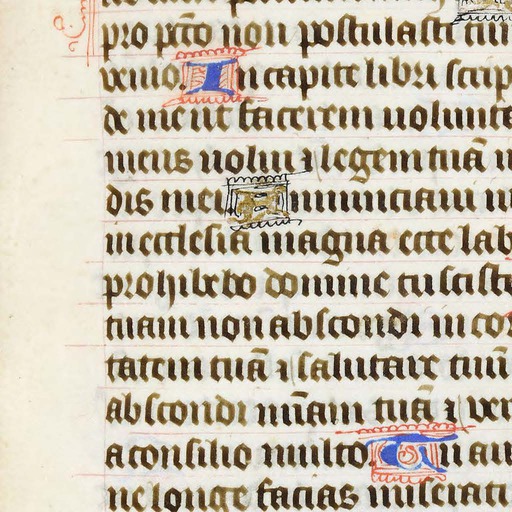 pro pctō non postulasti tu
uenio. In capite libri scrip
de me ut facerem uolunta
meus uolui ⁊ legem tuā
dis mei Annunciaui
in ecclesia magna ecce lab
prohibebo domine tu scisti
tuam non abscondi in cor
tatem tuā ⁊ salutare tuū
abscondi mīam tuā ⁊ uer
a consilio multo. Tu au
ne longe facias miserati